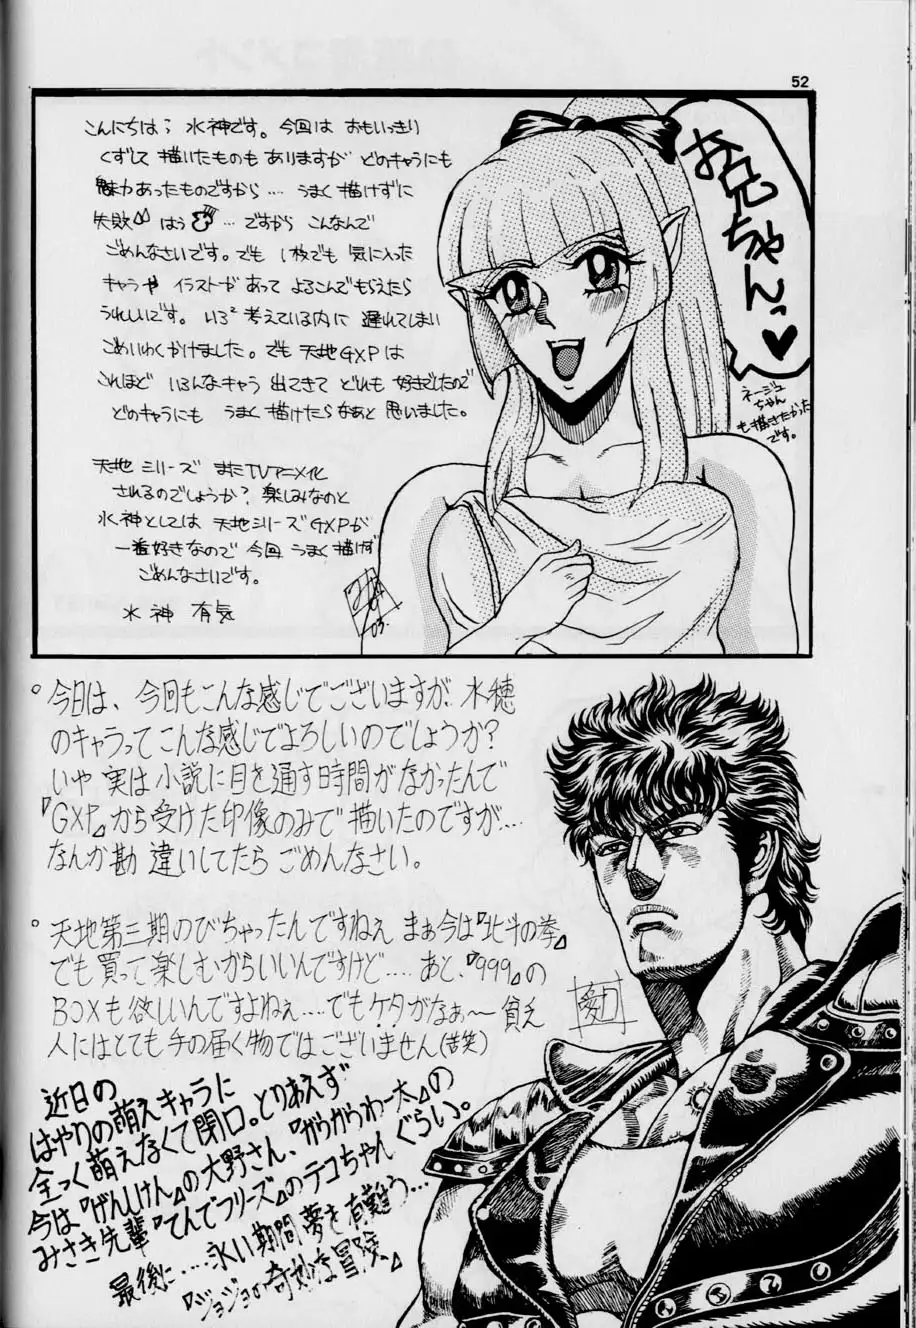 52
こんにちは、水神です。今回は おもいっきり
くずして 描いたものも ありますが どのキャラにも
魅力あったものですから…. うまく 描けずに
失敗 はう …ですから こんなんで
ごめんなさいです。でも 1枚でも 気に入った
キャラや イラストがあって よろこんでもらえたら
うれしいです。いろ²考えている内に 遅れてしまい
ごめいわくかけました。でも 天地GXPは
これほど いろんなキャラ 出てきて どれも 好きでしたので
どのキャラにも うまく 描けたらなあと 思いました。
天地シリーズ またTVアニメ化
されるのでしょうか? 楽しみなのと
水神としては 天地シリーズGXPが
一番好きなので 今回 うまく描けず
ごめんなさいです。
水神 有気
お兄ちゃんっ♥
ネージュ
ちゃん
も描きたかった
です。
。今日は、今回もこんな感じでございますが、水穂
のキャラってこんな感じでよろしいのでしょうか?
いや 実は小説に目を通す時間がなかったんで
『GXP』から受けた印像のみで描いたのですが….
なんか勘違いしてたら ごめんなさい。
。天地第三期のびちゃったんですねえ まぁ今は『北斗の拳』
でも買って楽しむからいいんですけど….. あと、『999』の
BOXも欲しいんですよねぇ….でもケタがなぁ〜 貧乏
人にはとても手の届く物ではございません(苦笑)
近日の
はやりの萌えキャラに
全っく萌えなくて閉口。とりあえず
今は『げんしけん』の大野さん、『がうがうわー太』の
みさき先輩『てんでフリーズ』のテコちゃんぐらい。
最後に…..永い期間夢を有難う…
『ジョジョの奇妙な冒険』